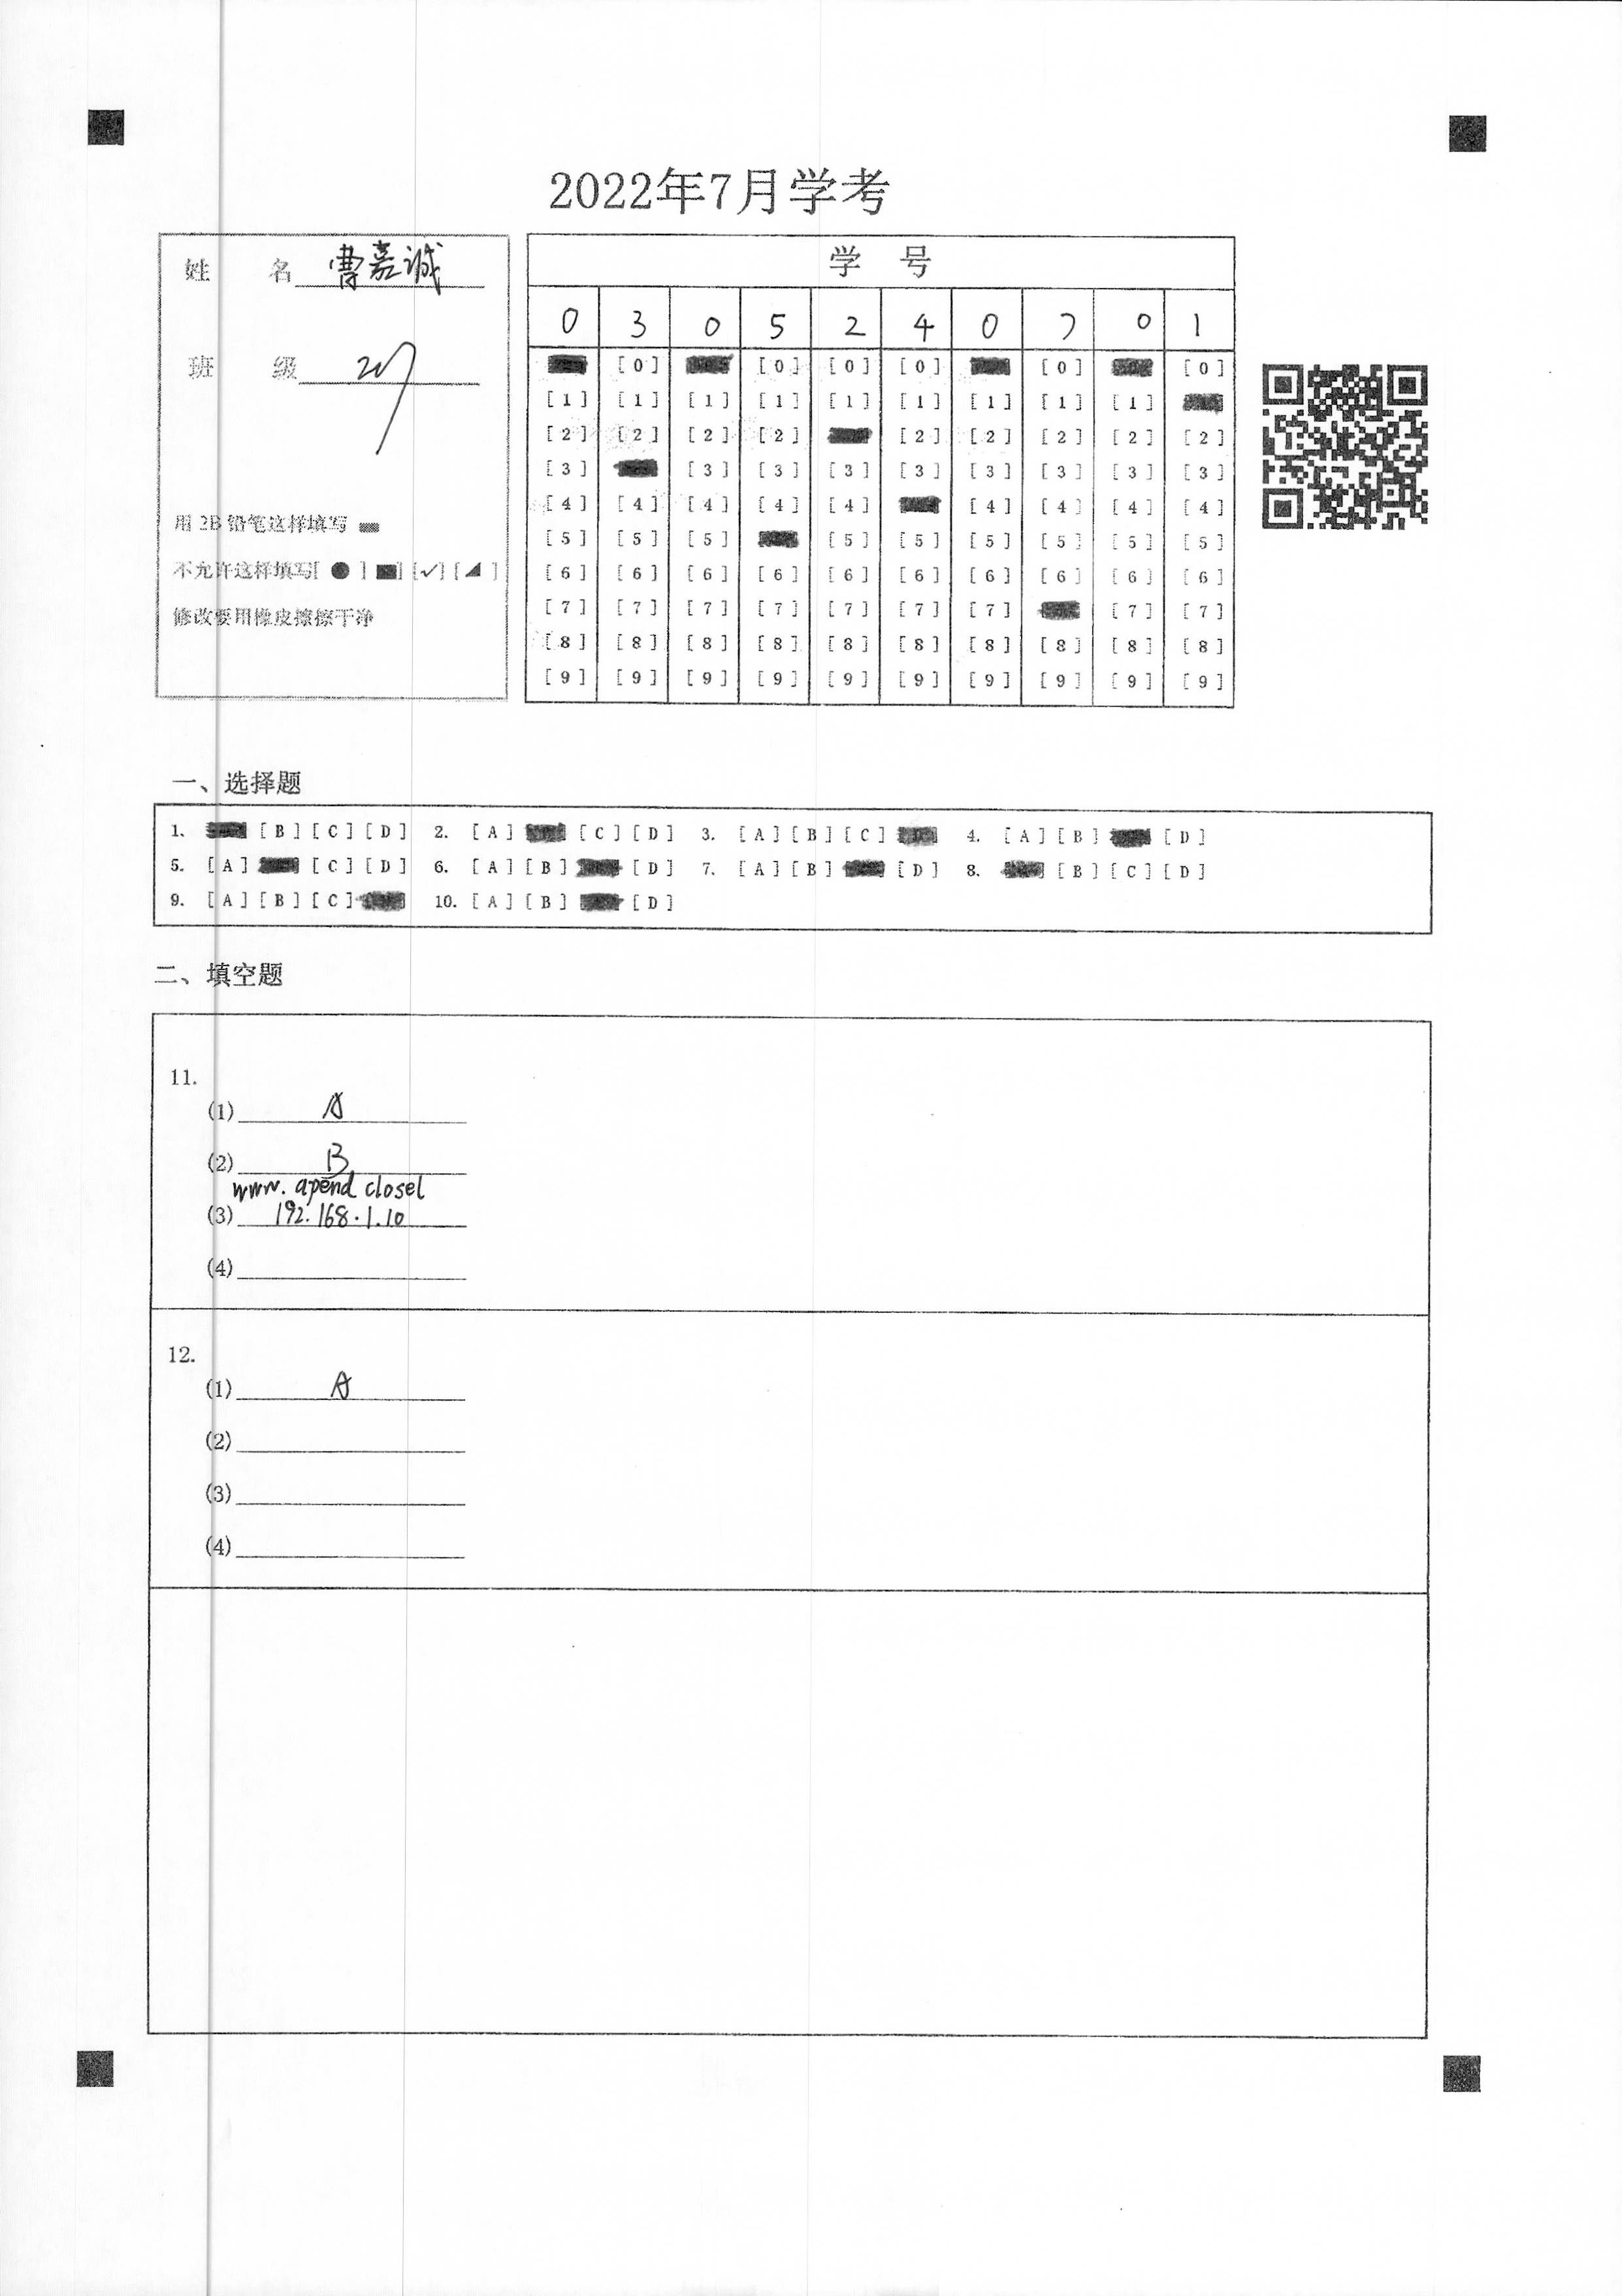 2022年7月学考
姓 名 曹嘉诚
班 级 207
用 2B 铅笔这样填写
不允许这样填写[ ● ] [■] [✓] [◢ ]
修改要用橡皮擦擦干净
学 号
0 3 0 5 2 4 0 7 0 1
[0] [0] [0] [0] [0] [0]
[1] [1] [1] [1] [1] [1] [1] [1] [1]
[2] [2] [2] [2] [2] [2] [2] [2] [2]
[3] [3] [3] [3] [3] [3] [3] [3] [3]
[4] [4] [4] [4] [4] [4] [4] [4] [4]
[5] [5] [5] [5] [5] [5] [5] [5] [5]
[6] [6] [6] [6] [6] [6] [6] [6] [6] [6]
[7] [7] [7] [7] [7] [7] [7] [7] [7]
[8] [8] [8] [8] [8] [8] [8] [8] [8] [8]
[9] [9] [9] [9] [9] [9] [9] [9] [9] [9]
一、选择题
1. [B] [C] [D] 2. [A] [C] [D] 3. [A] [B] [C] 4. [A] [B] [D]
5. [A] [C] [D] 6. [A] [B] [D] 7. [A] [B] [D] 8. [B] [C] [D]
9. [A] [B] [C] 10. [A] [B] [D]
二、填空题
11.
(1) A
(2) B
www. apend closel
(3) 192.168.1.10
(4)
12.
(1) A
(2)
(3)
(4)